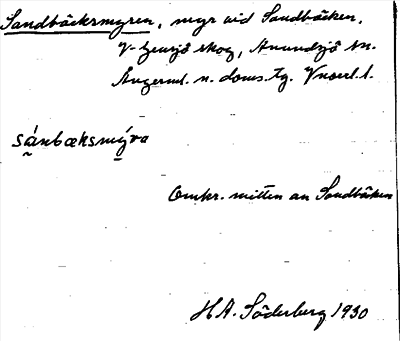 Sandbäcksmyren, myr vid Sandbäcken,
V-Gensjö skog, Anundsjö sn.
Ångerml. n. doms.tg. Vnorrl. l.
sánbæksmýra
Omkr. mitten av Sandbäcken
H.A. Söderberg 1930